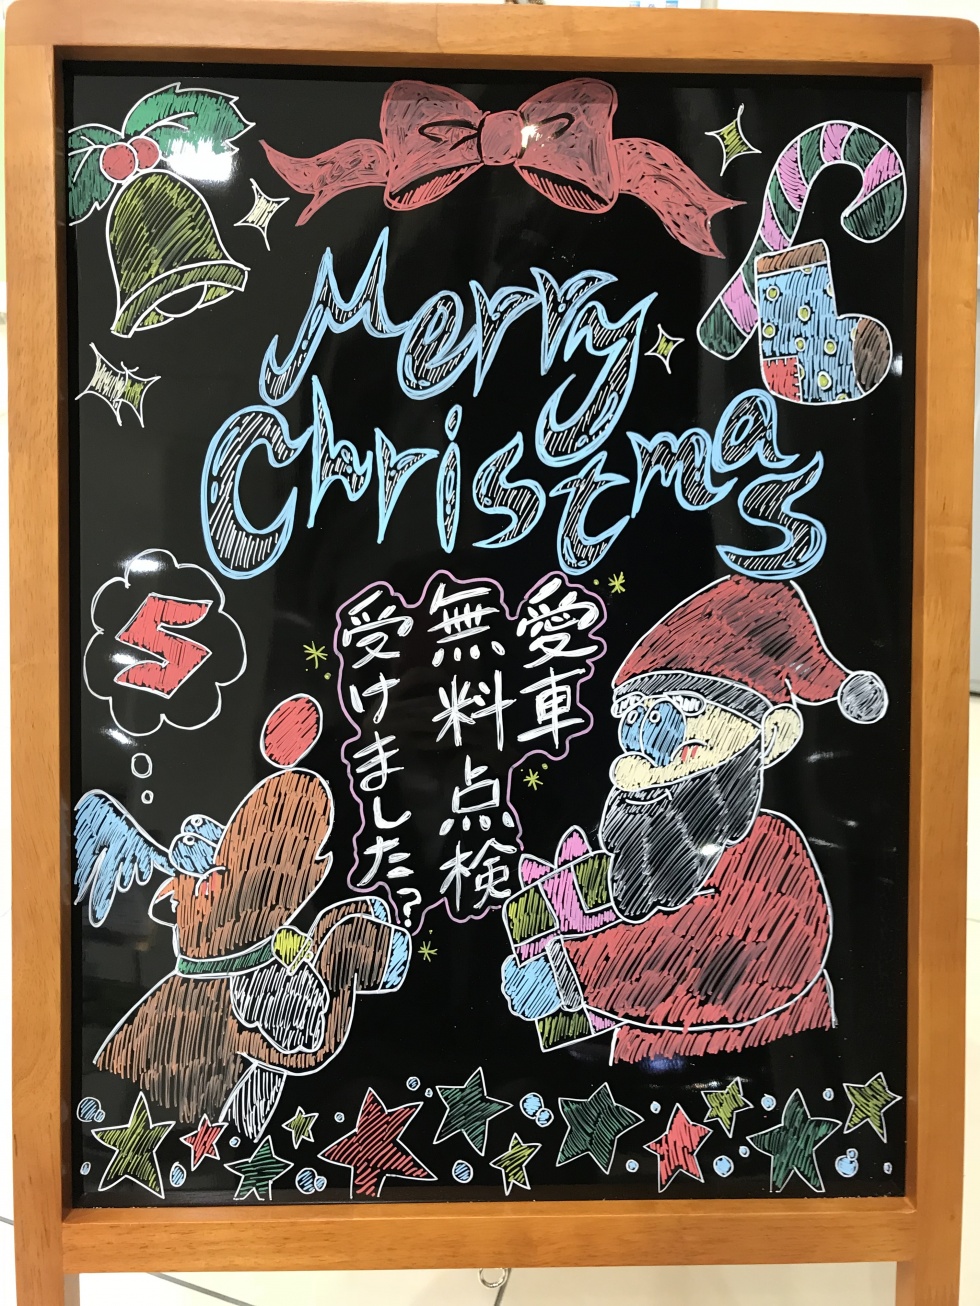 Merry
Christmas
愛車
無料点検
受けました?